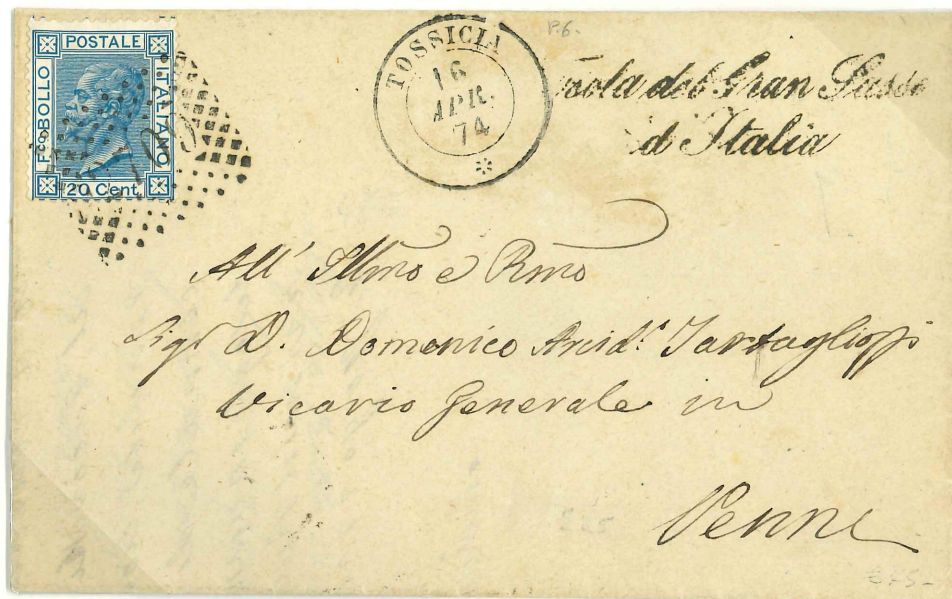 POSTALE
F.co BOLLO
ITALIANO
20 Cent.
TOSSICIA
16
APR.
74
P.6.
sola del Gran Sasso
d'Italia
All' Illmo e Rmo
Sigr D. Domenico Arcid.
Vicario Generale in
Penne